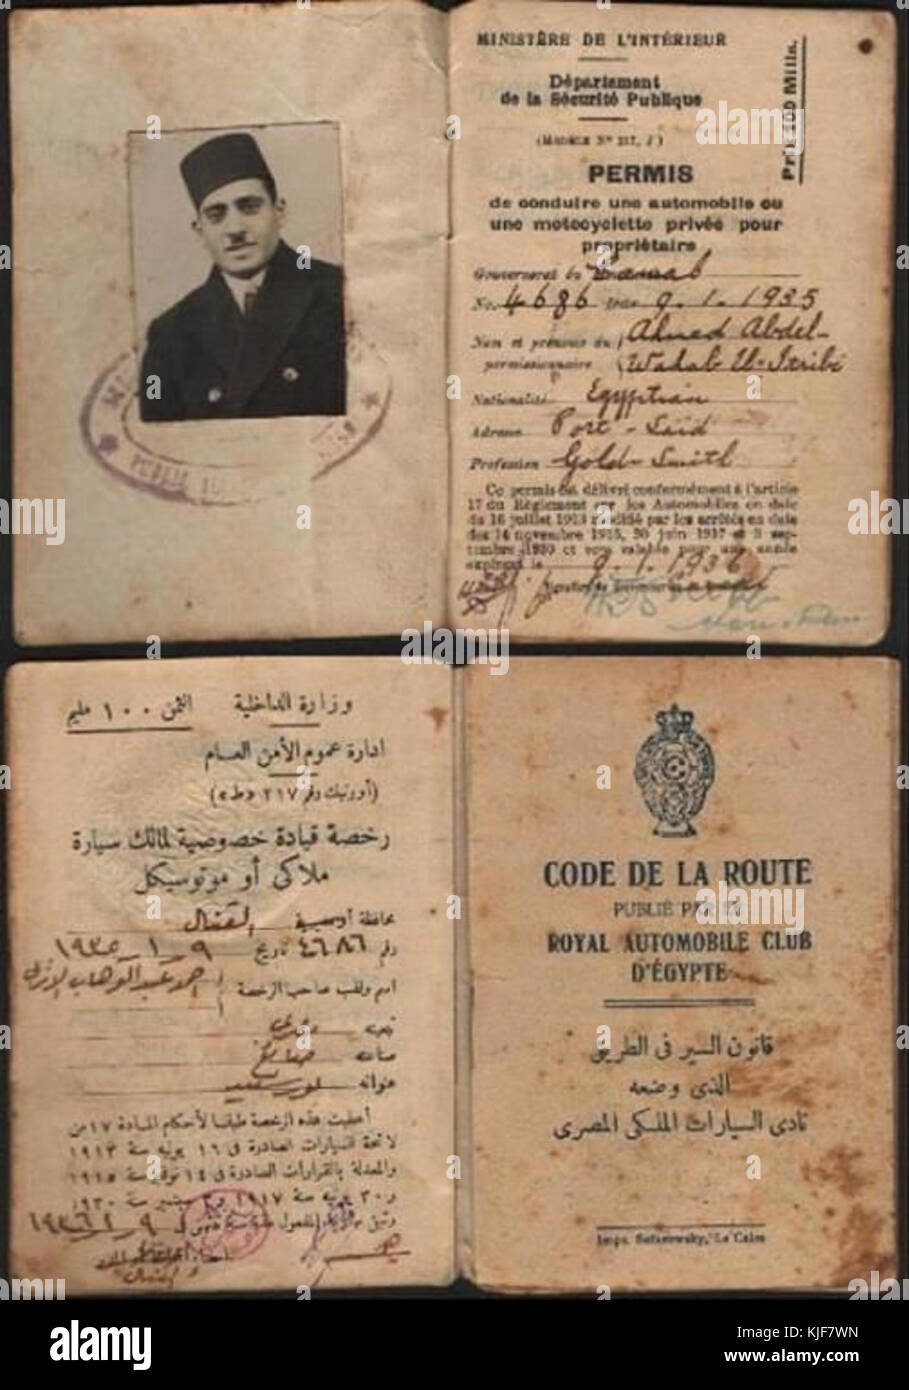 MINISTÈRE DE L'INTÉRIEUR
Département
de la Sécurité Publique
Prix 100 Mills.
PERMIS
de conduire une automobile ou
une motocyclette privée pour
propriétaire
Gouvernorat du
No. 4686 9.1.1935
Nom et prénoms du Ahmed Abdel-
permissionnaire Wahab El-Itribi
Nationalité Egyptian
Adresse Port-Said
Profession Gold-Smith
Ce permis est délivré conformément à l'article
17 du Règlement sur les Automobiles en date
du 16 juillet 1913 modifié par les arrêtés en date
des 14 novembre 1915, 30 juin 1917 et 3 sep-
tembre 1930 et sera valable pour une année
expirant le 9.1.1936
PUBLIC
وزارة الداخلية
الثمن ١٠٠ مليم
ادارة عموم الأمن العام
رخصة قيادة خصوصية لمالك سيارة
ملاكى أو موتوسيكل
محافظة القنال
رقم ٤٦٨٦ تاريخ ٩ - ١ - ١٩٣٥
اسم ولقب صاحب الرخصة احمد عبد الوهاب
تبعيته مصرى
صناعته صايغ
عنوانه بورسعيد
أعطيت هذه الرخصة طبقا لأحكام المادة ١٧ من
لائحة السيارات الصادرة فى ١٦ يوليه سنة ١٩١٣
والمعدلة بالقرارات الصادرة فى ١٤ نوفمبر سنة ١٩١٥
و٣٠ يونيه سنة ١٩١٧ و٣ سبتمبر سنة ١٩٣٠
٩ - ١ - ١٩٣٦
CODE DE LA ROUTE
PUBLIÉ PAR LE
ROYAL AUTOMOBILE CLUB
D'ÉGYPTE
قانون السير فى الطريق
الذى وضعه
نادى السيارات الملكى المصرى
alamy
Image ID: KJF7WN
www.alamy.com